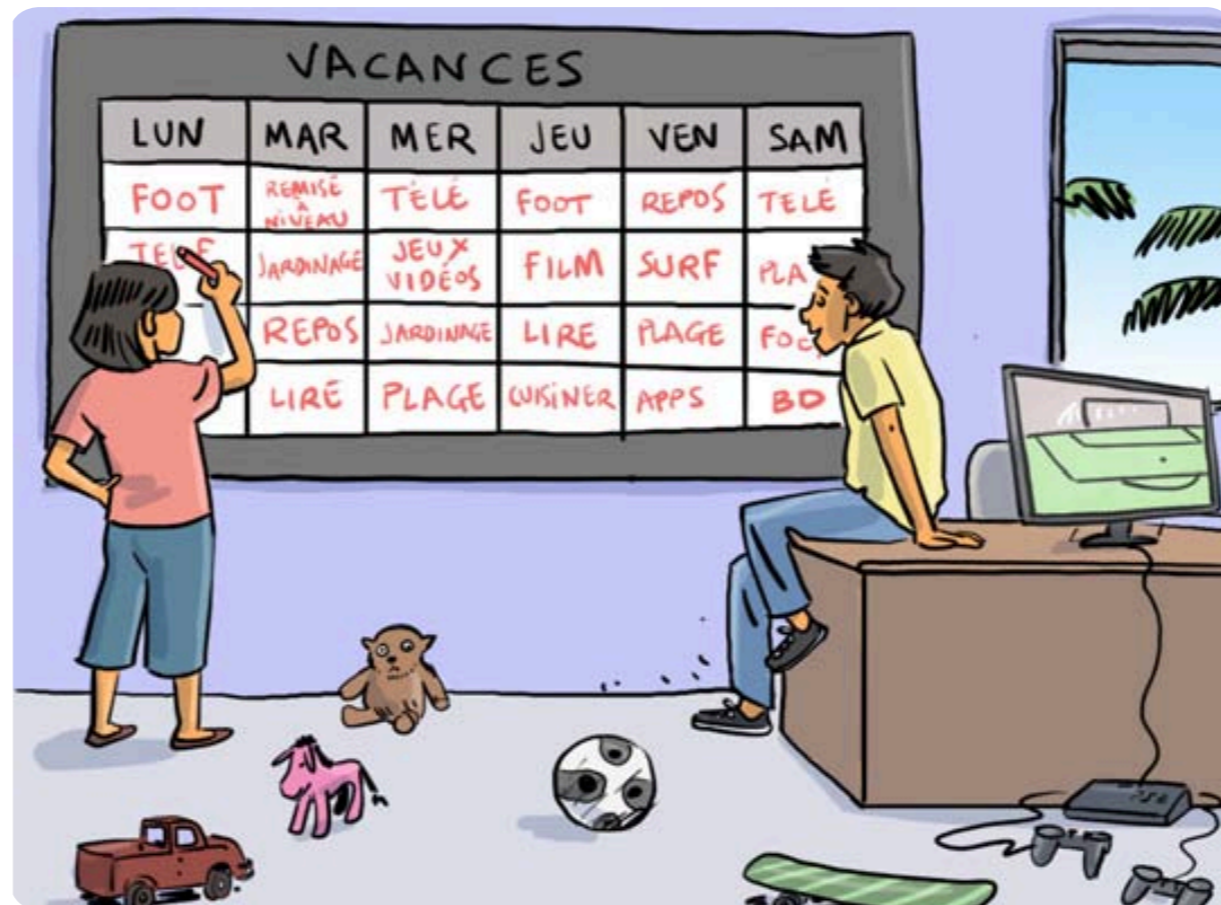 VACANCES
LUN MAR MER JEU VEN SAM
FOOT REMISÉ À NIVEAU TÉLÉ FOOT REPOS TELÉ
JARDINAGE JEUX VIDÉOS FILM SURF
REPOS JARDINAGE LIRE PLAGE
LIRE PLAGE CUISINER APPS BD